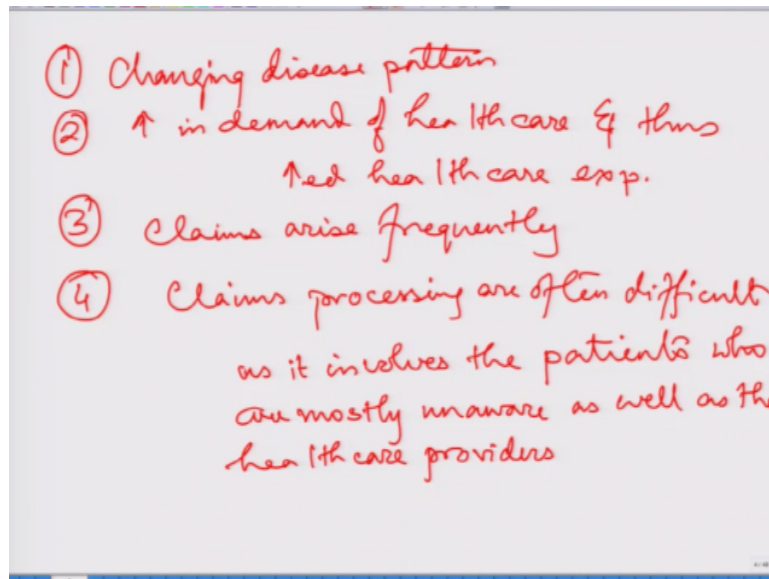 ① Changing disease pattern
② ↑ in demand of healthcare & thus
↑ed healthcare exp.
③ Claims arise frequently
④ Claims processing are often difficult
as it involves the patients who
are mostly unaware as well as the
healthcare providers